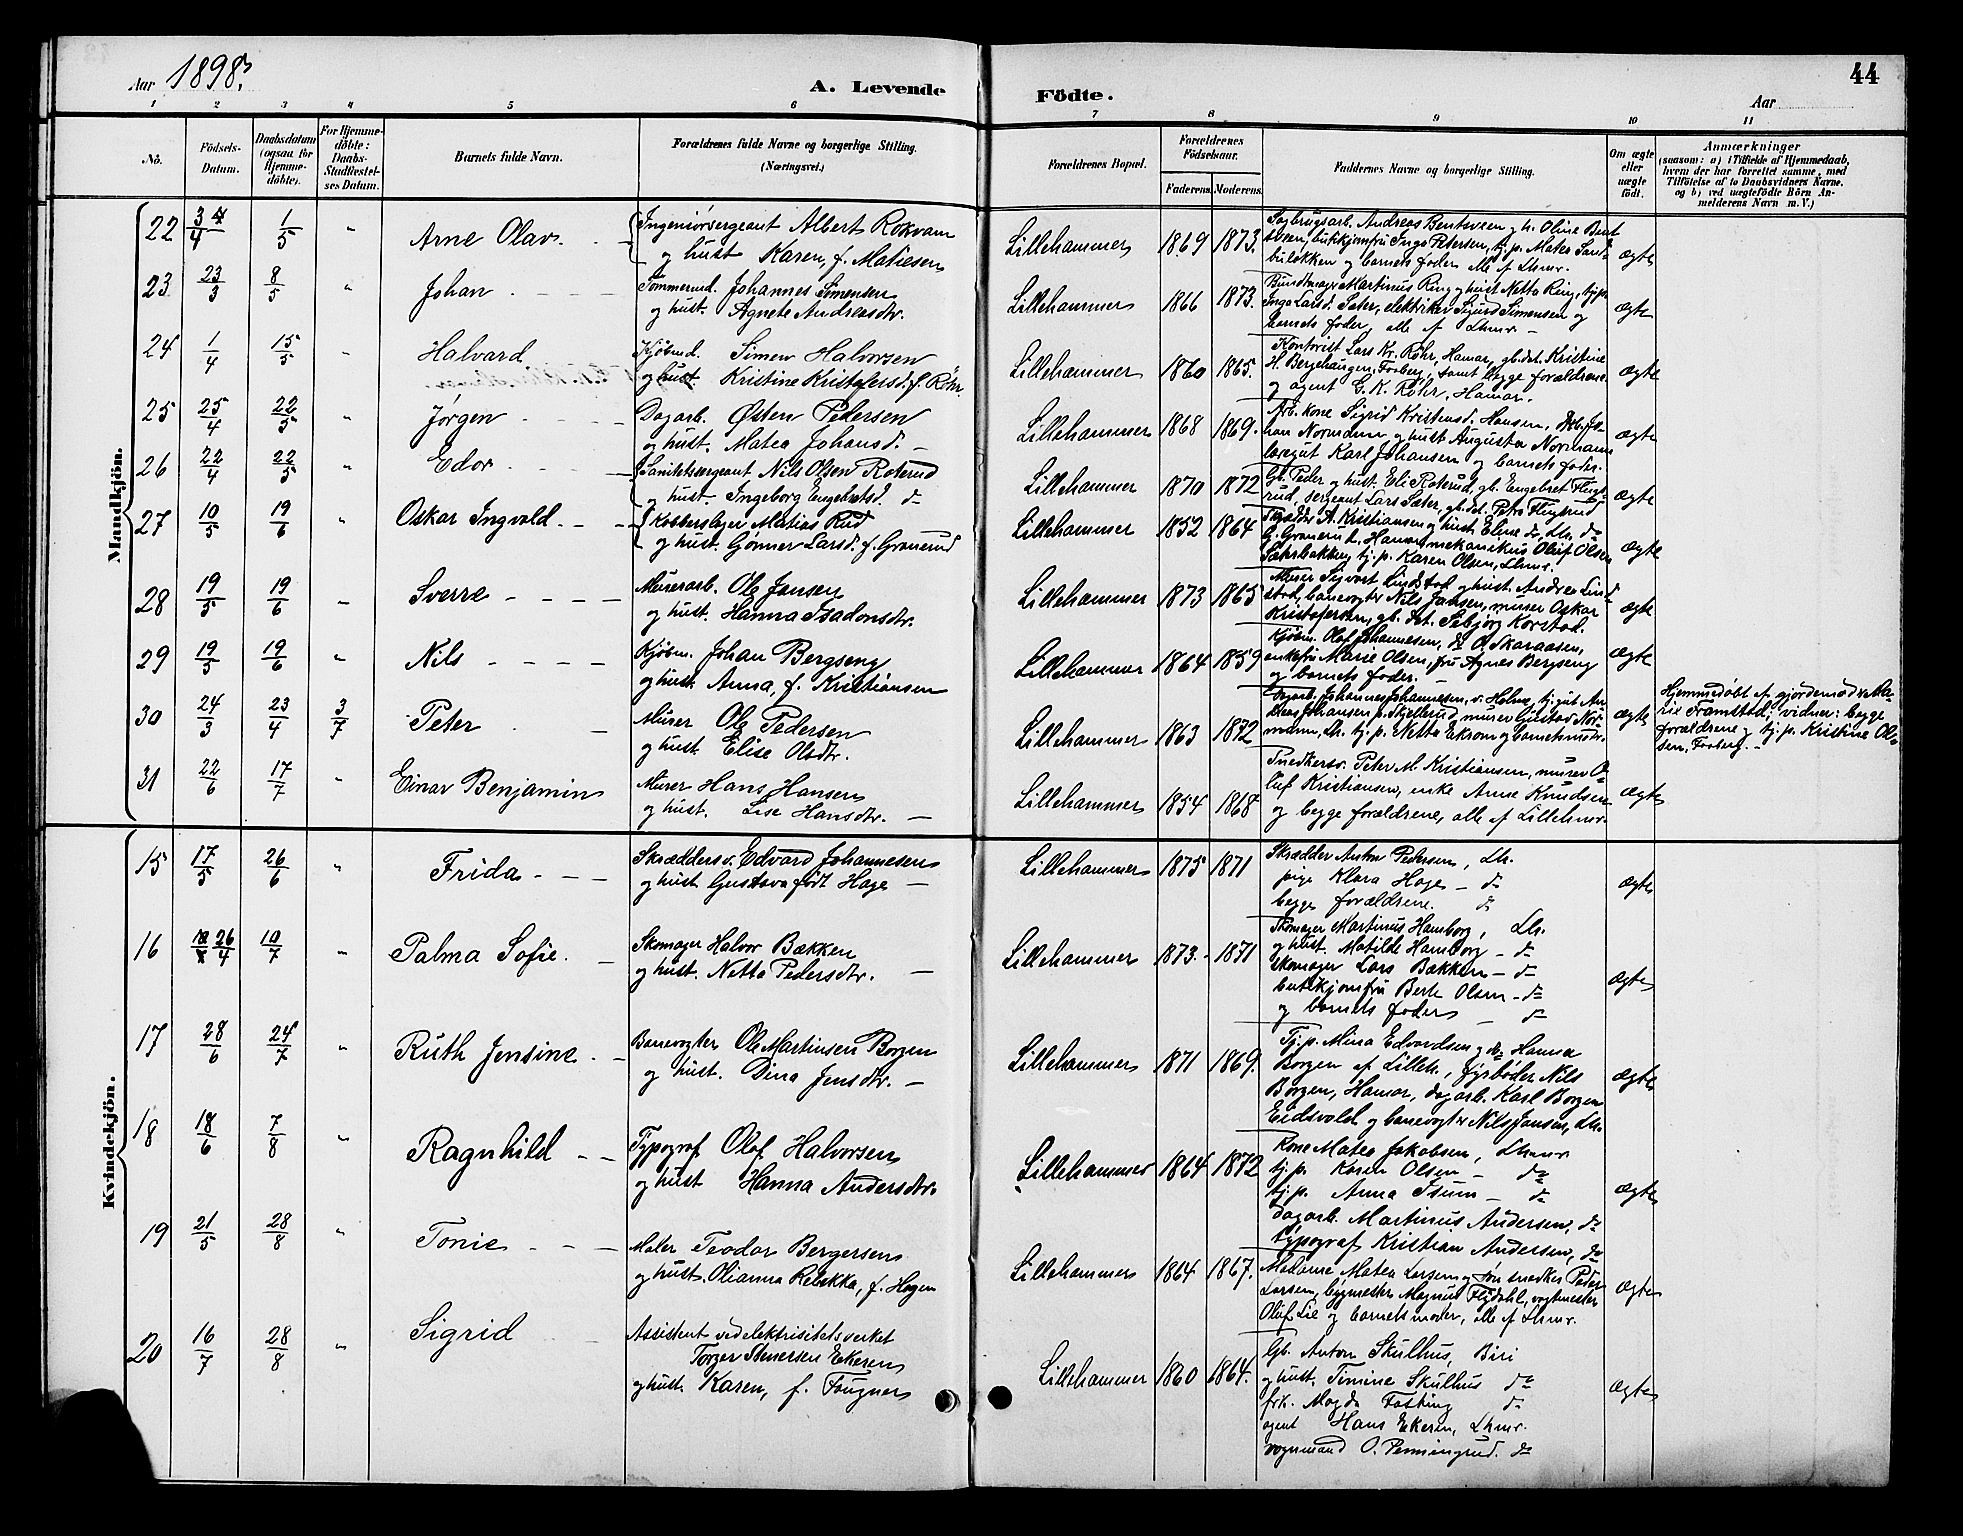 Aar 1898. A. Levende Födte. Aar 44
1 2 3 4 5 6 7 8 9 10 11
No. Födsels-Datum. Daabsdatum (ogsaa for Hjemme-döbte). For Hjemme-döbte: Daabs-Stadfæstel-ses Datum. Barnets fulde Navn. Forældrenes fulde Navne og borgerlige Stilling. (Næringsvei.) Forældrenes Bopæl. Forældrenes Födselsaar. Faderens. Moderens. Faddernes Navne og borgerlige Stilling. Om ægte eller uægte födt. Anmærkninger (saasom: a) i Tilfælde af Hjemmedaab, hvem der har forrettet samme, med Tilföielse af to Daabsvidners Navne, og b) ved uægtefödte Börn Anmelderens Navn m. V.)
Mandkjön.
22 3/4 1/5 " Arne Olav. Ingeniørsergeant Albert Rokvam
og hust Karen, f. Matiesen
Lillehammer 1869 1873. Sagbrugsarb. Andreas Bentsveen og h. Oline Bent
sveen, butikjomfru Inga Petersen, tj.p. Matea Sand-
bulökken og barnets fader alle af Lhmr. ægte
23 23/3 8/5 " Johan Tømmermd. Johannes Simensen
og hust. Agnete Andreasdtr.
Lillehammer 1866 1873. Bundtmager Martinus Ring og hust Netta Ring, tj.p.
Inga Larsd. Sater, elektriker Sigurd Simensen og
barnets fader, alle af Lhmr. ægte
24 1/4 15/5 " Halvard Kjøbmd. Simen Halvorsen
og hust Kristine Kristofersd. f. Röhr.
Lillehammer 1860 1865. Kontorist Lars Kr. Röhr, Hamar, gb.dat. Kristine
H. Berghaugen, Faaberg, samt begge forældrene
og agent G. K. Röhr, Hamar. ægte
25 25/4 22/5 " Jørgen Dagarb. Østen Pedersen
og hust. Matea Johansd.
Lillehammer 1868 1869. Arb. kone Sigrid Kristensd. Hansen, Arb. Jo-
han Normann og hust Augusta Normann
læregut Karl Johansen og barnets fader. ægte
26 22/4 22/5 " Edor Sanitetssergeant Nils Olsen Roterud
og hust. Ingeborg Engebretsd. do
Lillehammer 1870 1872 Gb. Peder og hust. Eli Roterud, gb. Engebret Flugs-
rud, sergeant Lars Sater, gb.dat. Petra Flugsrud ægte
27 10/5 19/6 " Oskar Ingvald. Kobberslager Matias Rud
og hust. Gønner Larsd. f. Grønerud
Lillehammer 1852 1864 Skrædder A. Kristiansen og hust Elene do, Lh. do
G. Grønerud, Hamar, mekanikus Oluf Olsen
Sæhrbakken, tj.p. Karen Olsen, Lhmr. ægte
28 19/5 19/6 " Sverre Murerarb. Ole Jansen
og hust. Hanna Isadorsdtr.
Lillehammer 1873 1865 Murer Sivert Lindstad og hust. Andrea Lind-
stad, banevogter Nils Jansen, murer Oskar
Kristofersen, gb. dat. Sebjörg Korstad. ægte
29 19/3 19/6 " Nils Kjøbm. Johan Bergseng
og hust. Anna, f. Kristiansen
Lillehammer 1864 1859 Kjøbm. Olaf Johannesen, do O. Skaraasen,
enkefru Marie Olsen, fru Agnes Bergseng
og barnets fader. ægte
30 24/3 23/4 3/7 Peter Murer Ole Pedersen
og hust Elise Olsdtr.
Lillehammer 1863 1872 Dagarb. Johannes Johannesen, v. Holme, tj.gut An-
dreas Johansen p. Skjellerud, murer Gustav Nor-
mann, Lh. tj.p. Netta Ekrom og barnets mod. ægte
Hjemmedøbt af gjordemoder Ma-
rie Framstad; vidner: begge
forældrene og tj.p. Kristine Ol-
sen, Faaberg.
31 22/6 17/7 " Einar Benjamin Murer Hans Hansen
og hust. Lise Hansdtr.
Lillehammer 1854 1868 Snedkersv. Peter M. Kristiansen, murer O-
luf Kristiansen, enke Anne Knudsen
og begge forældrene, alle af Lillehmr. ægte
Kvindekjön.
15 17/5 26/6 " Frida Skræddersv. Edvard Johannesen
og hust Gustava født Hage
Lillehammer 1875 1871 Skrædder Anton Pedersen, Lh.
pige Klara Hage do
begge forældrene. do ægte
16 26/4 10/7 " Palma Sofie. Skomager Halvor Bækken
og hust. Netta Pedersdtr.
Lillehammer 1873. 1871 Skomager Martinus Hamborg, Lh.
og hust. Matilde Hamborg do
skomager Lars Bækken do
butikjomfru Berte Olsen do
og barnets fader do ægte
17 28/6 24/7 " Ruth Jensine Banevogter Ole Martinsen Borgen
og hust. Dina Jensdtr.
Lillehammer 1871 1869. Tj.p. Mina Edvardsen og do Hanna
Borgen af Lilleh., fyrbøder Nils
Borgen, Hamar, dagarb. Karl Borgen
Eidsvold og banevogter Nils Jansen, Lh. ægte
18 18/6 7/8 " Ragnhild Typograf Olaf Halvorsen
og hust Hanna Andersdtr.
Lillehammer 1864 1872 Kone Matea Jakobsen, Lhmr
tj.p. Karen Olsen do
tj.p. Anna Isum do
dagarb. Martinus Andersen, do
Typograf Kristian Andersen, do ægte
19 21/5 28/8 " Tonie Maler Teodor Bergersen
og hust. Olianna Rebekka, f. Hagen
Lillehammer 1864 1867. Madame Matea Larsen og søn snedker Peder
Larsen, bygmester Magnus Flödahl, vagtmester
Oluf Lie og barnets moder, alle af Lhmr. ægte
20 16/7 28/8 " Sigrid Assistent ved elektrisitetsverket
Torger Stenersen Ekeren
og hust. Karen, f. Fougner
Lillehammer 1860 1864. Gb. Anton Skulhus, Biri
og hust. Timine Skulhus do
frk. Magda Fasting do
agent Hans Ekeren, Lhmr.
vognmand O. Penningrud. do ægte